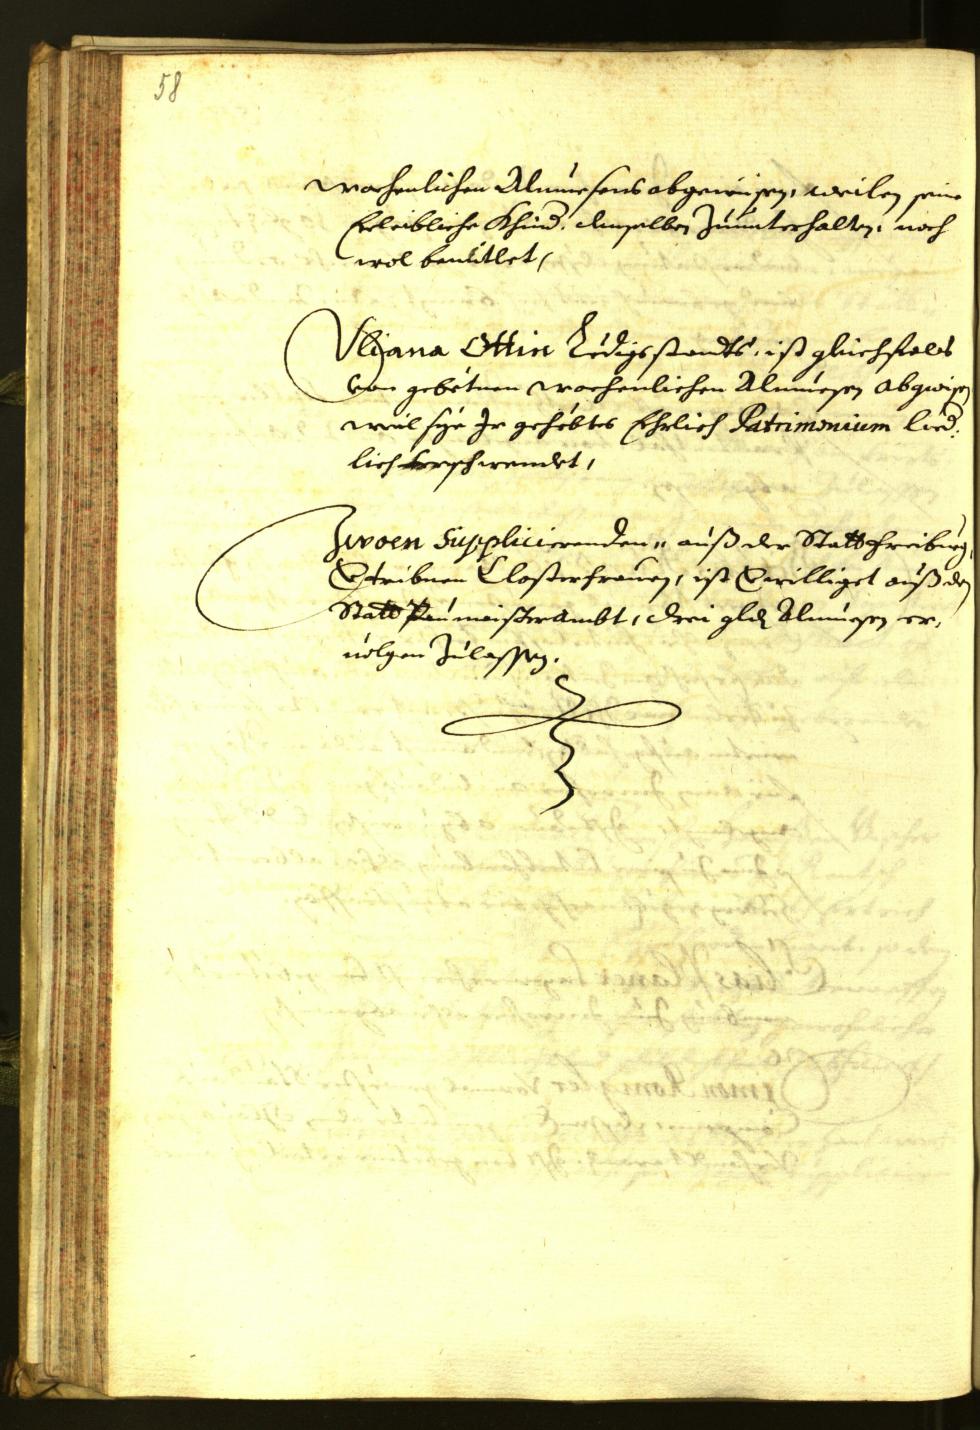 58
wochenlichen Almuesens abgewisen, weilen seine
Eeleibliche Khind, denselben zuunterhalten, noch
wol bemitlet,
Uliana Ottin Ledigs standts, ist gleichfals
von gebetnen wochenlichen Almuesen abgwisen
weil sye Ir gehebtes Ehrlich Patrimonium lied:
lich verschwendet,
Zwoen Supplicierenden, auß der Statt Freiburg,
Vertribnen Closterfrauen, ist Verwilliget auß dem
Statt Paumaisterambt, drei gld Almuesen er,
volgen Zulassen.